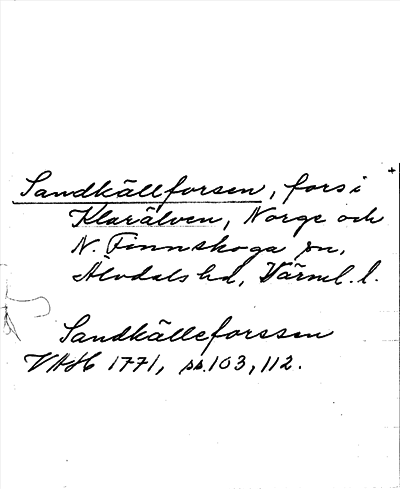 Sandkällforsen, fors i
Klarälven, Norge och
N. Finnskoga sn,
Älvdals hd, Värml. l.
Sandkälleforssen
VAH 1771, ss. 103, 112.